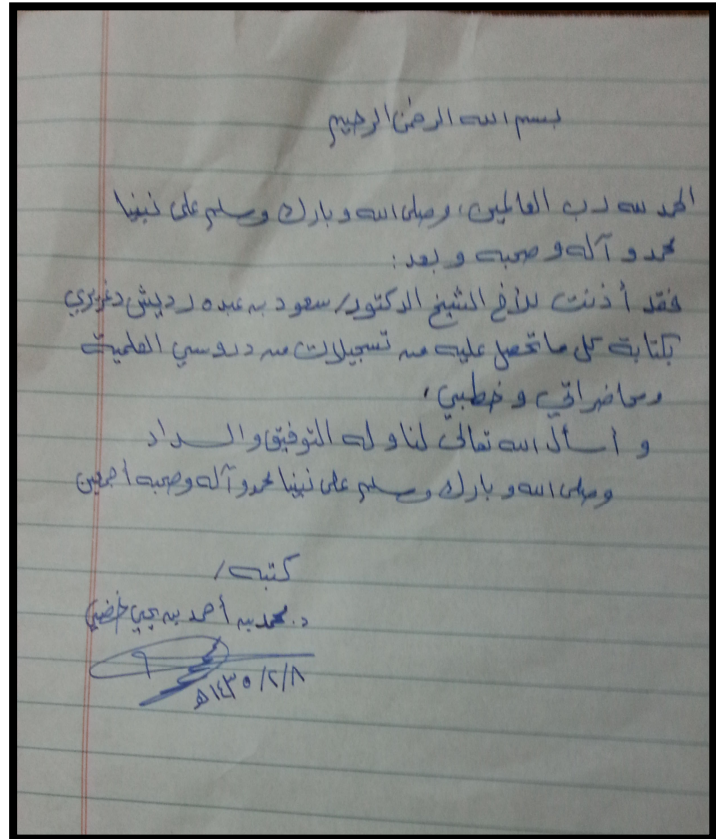 بسم الله الرحمٰن الرحيم
الحمد لله رب العالمين، وصلى الله وبارك وسلم على نبينا
محمد و آله و صحبه و بعد:
فقد أذنت للأخ الشيخ الدكتور/ سعود بن عبده رديش دغريري
بكتابة كل ما تحصل عليه من تسجيلات من دروسي العلمية
ومحاضراتي و خطبي،
و أسأل الله تعالى لنا و له التوفيق والسداد
وصلى الله و بارك وسلم على نبينا محمد و آله وصحبه أجمعين
كتبه/
د. محمد بن أحمد بن يحيى خضي
١٤٣٥/٢/٨هـ